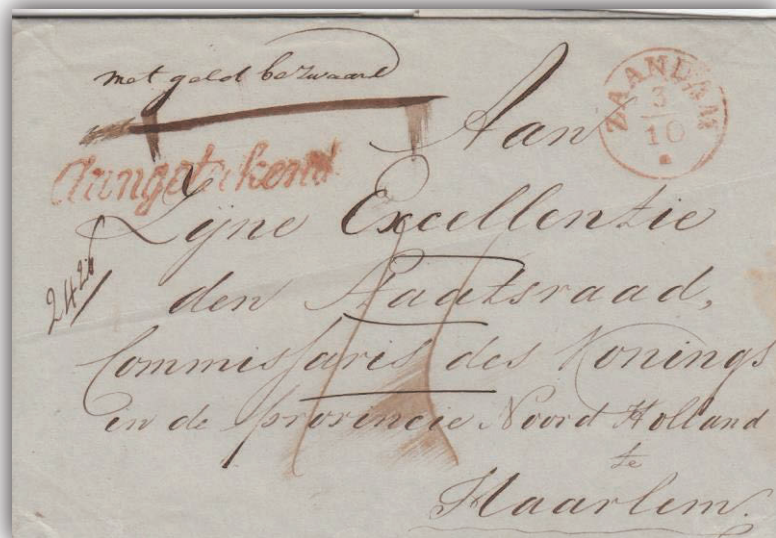 met geld bezwaard
ZAANDAM
3
10
Aan
Aangetekend
Zyne Excellentie
den Staatsraad,
Commissaris des Konings
in de provincie Noord Holland
te
Haarlem.